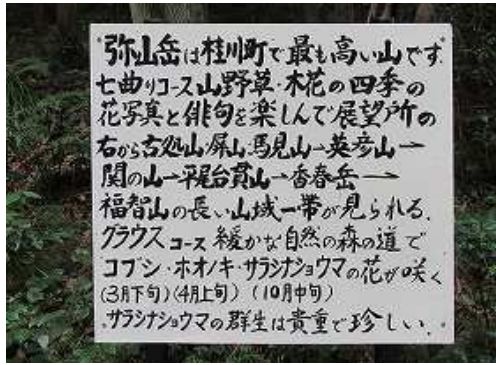 弥山岳は桂川町で最も高い山です.
七曲りコース山野草・木花の四季の
花写真と俳句を楽しんで展望所の
右から古処山・屏山・馬見山→英彦山→
関の山→平尾台貫山→香春岳→
福智山の長い山域一帯が見られる.
グラウスコース 緩かな自然の森の道で
コブシ・ホオノキ・サラシナショウマの花が咲く
(3月下旬)(4月上旬) (10月中旬)
・サラシナショウマの群生は貴重で珍しい.